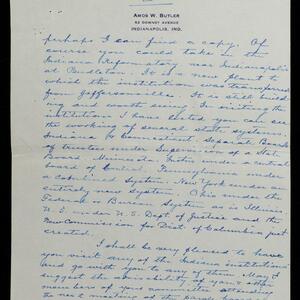 AMOS W. BUTLER
52 DOWNEY AVENUE
INDIANAPOLIS, IND.
perhaps I can find a copy. Of
course you could take in the
Indiana Reformatory near Indianapolis
at Pendleton. It is a new plant to
which the institution was transferred
from Jeffersonville. It is still build-
ing and worth seeing. In visiting the
institutions I have listed you can see
the working of several state systems.
Indiana by Government, Separate Boards
of trustees under Supervision of a State
Board, Minnesota Institns under a central
board of Control, Pennsylvania under
a Cabinet System, New York under an
entirely new system, Ohio under the
Federal or Bureau System as is Illinois
U. S. under U. S. Dept of Justice and the
New Commission for Dist. of Columbia just
created.
I shall be very pleased to have
you visit any of the Indiana institutions
and go with you to any of them. May I
suggest the advisability of you & other
members of your committee attending
the next meeting of the